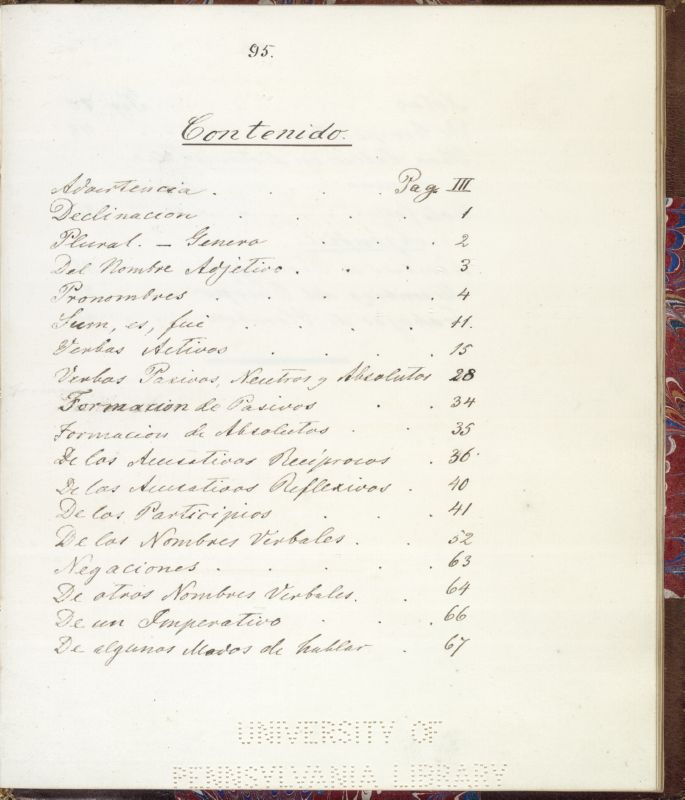 95.
Contenido.
Advertencia . . . . Pag. III
Declinacion . . . 1
Plural. — Genero . . 2
Del Nombre Adjetivo . . . 3
Pronombres . . . 4
Sum, es, fui . . . . 11.
Verbos Activos . . . . 15
Verbos Pasivos, Neutros y Absolutos 28
Formacion de Pasivos . . 34
Formacion de Absolutos . . 35
De los Acusativos Recíprocos . 36.
De los Acusativos Reflexivos . 40
De los Participios . . 41
De los Nombres Verbales . . 52
Negaciones . . . . . 63
De otros Nombres Verbales. . 64
De un Imperativo . . 66
De algunos Modos de hablar . 67
UNIVERSITY OF
PENNSYLVANIA LIBRARY